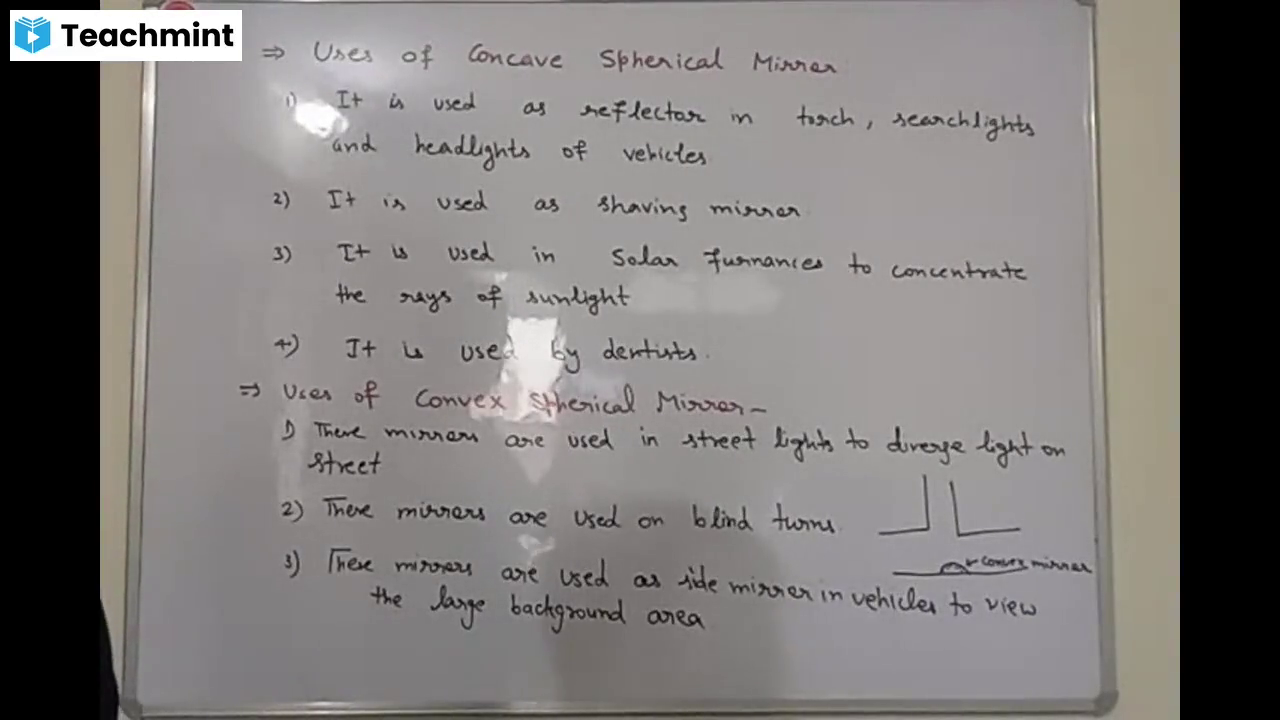 Teachmint
⇒ Uses of Concave Spherical Mirror
1) It is used as reflector in torch, searchlights
and headlights of vehicles
2) It is used as shaving mirror
3) It is used in Solar furnances to concentrate
the rays of sunlight
4) It is used by dentists.
⇒ Uses of Convex Spherical Mirror -
1) These mirrors are used in street lights to diverge light on
street
2) These mirrors are used on blind turns
convex mirror
3) These mirrors are used as side mirror in vehicles to view
the large background area